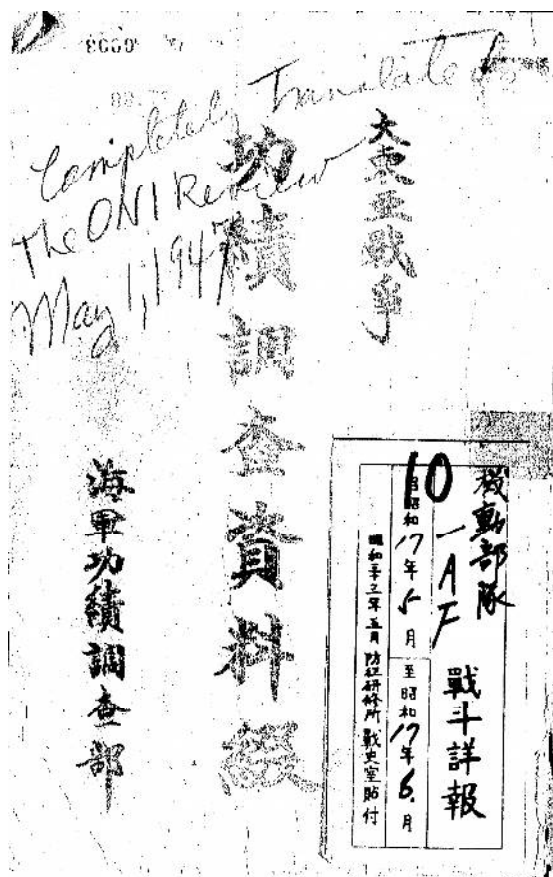 Completely Translated in
The ONI Review
May 1, 1947
大東亜戦争
功績調査資料綴
海軍功績調査部
機動部隊
10
一AF 戰斗詳報
自昭和17年5月 至昭和17年6月
昭和三十三年五月 防衛研修所 戰史室貼付